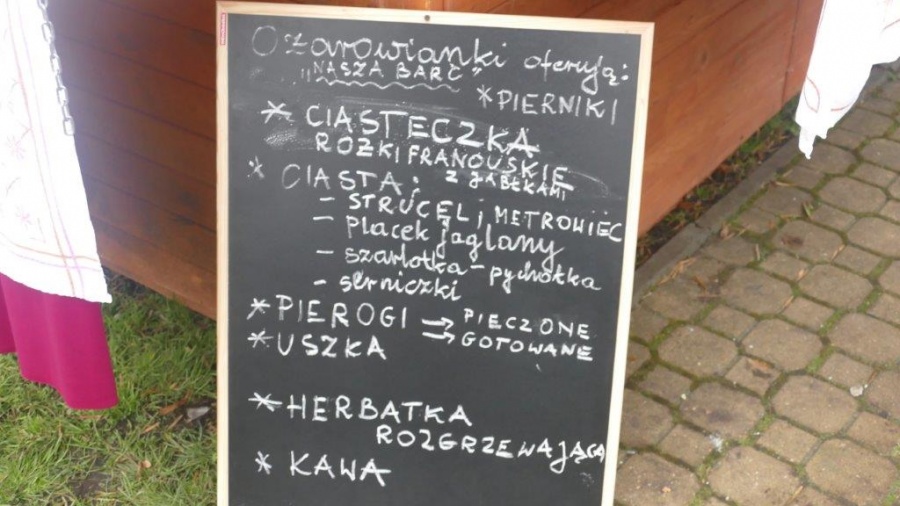 Ożarowianki oferują:
„NASZA BARĆ"
* PIERNIKI
* CIASTECZKA
ROŻKI FRANCUSKIE
Z JABŁKAMI
* CIASTA:
- STRUCEL i METROWIEC
- placek jaglany
- szarlotka - pychotka
- serniczki
* PIEROGI → PIECZONE
→ GOTOWANE
* USZKA
* HERBATKA
ROZGRZEWAJĄCA
* KAWA